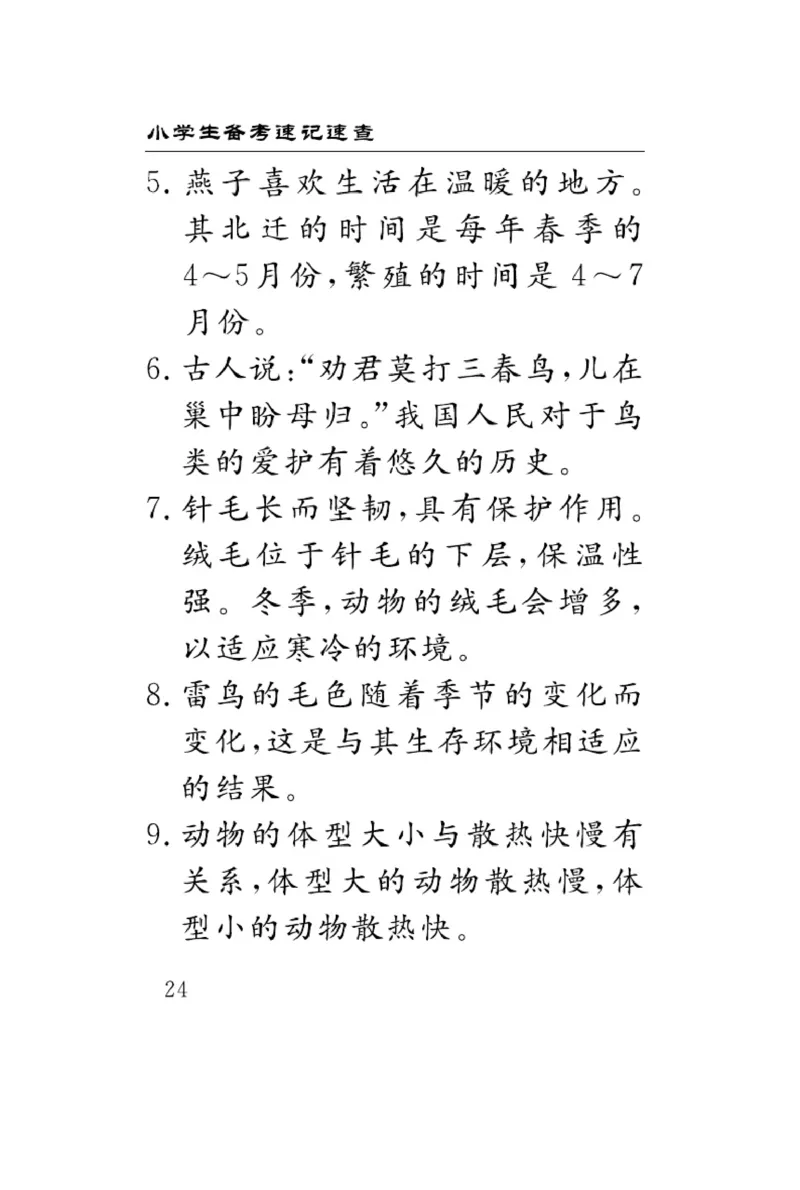 小学生备考速记速查
5. 燕子喜欢生活在温暖的地方。
其北迁的时间是每年春季的
4～5月份,繁殖的时间是 4～7
月份。
6. 古人说:“劝君莫打三春鸟,儿在
巢中盼母归。”我国人民对于鸟
类的爱护有着悠久的历史。
7. 针毛长而坚韧,具有保护作用。
绒毛位于针毛的下层,保温性
强。冬季,动物的绒毛会增多,
以适应寒冷的环境。
8. 雷鸟的毛色随着季节的变化而
变化,这是与其生存环境相适应
的结果。
9. 动物的体型大小与散热快慢有
关系,体型大的动物散热慢,体
型小的动物散热快。
24